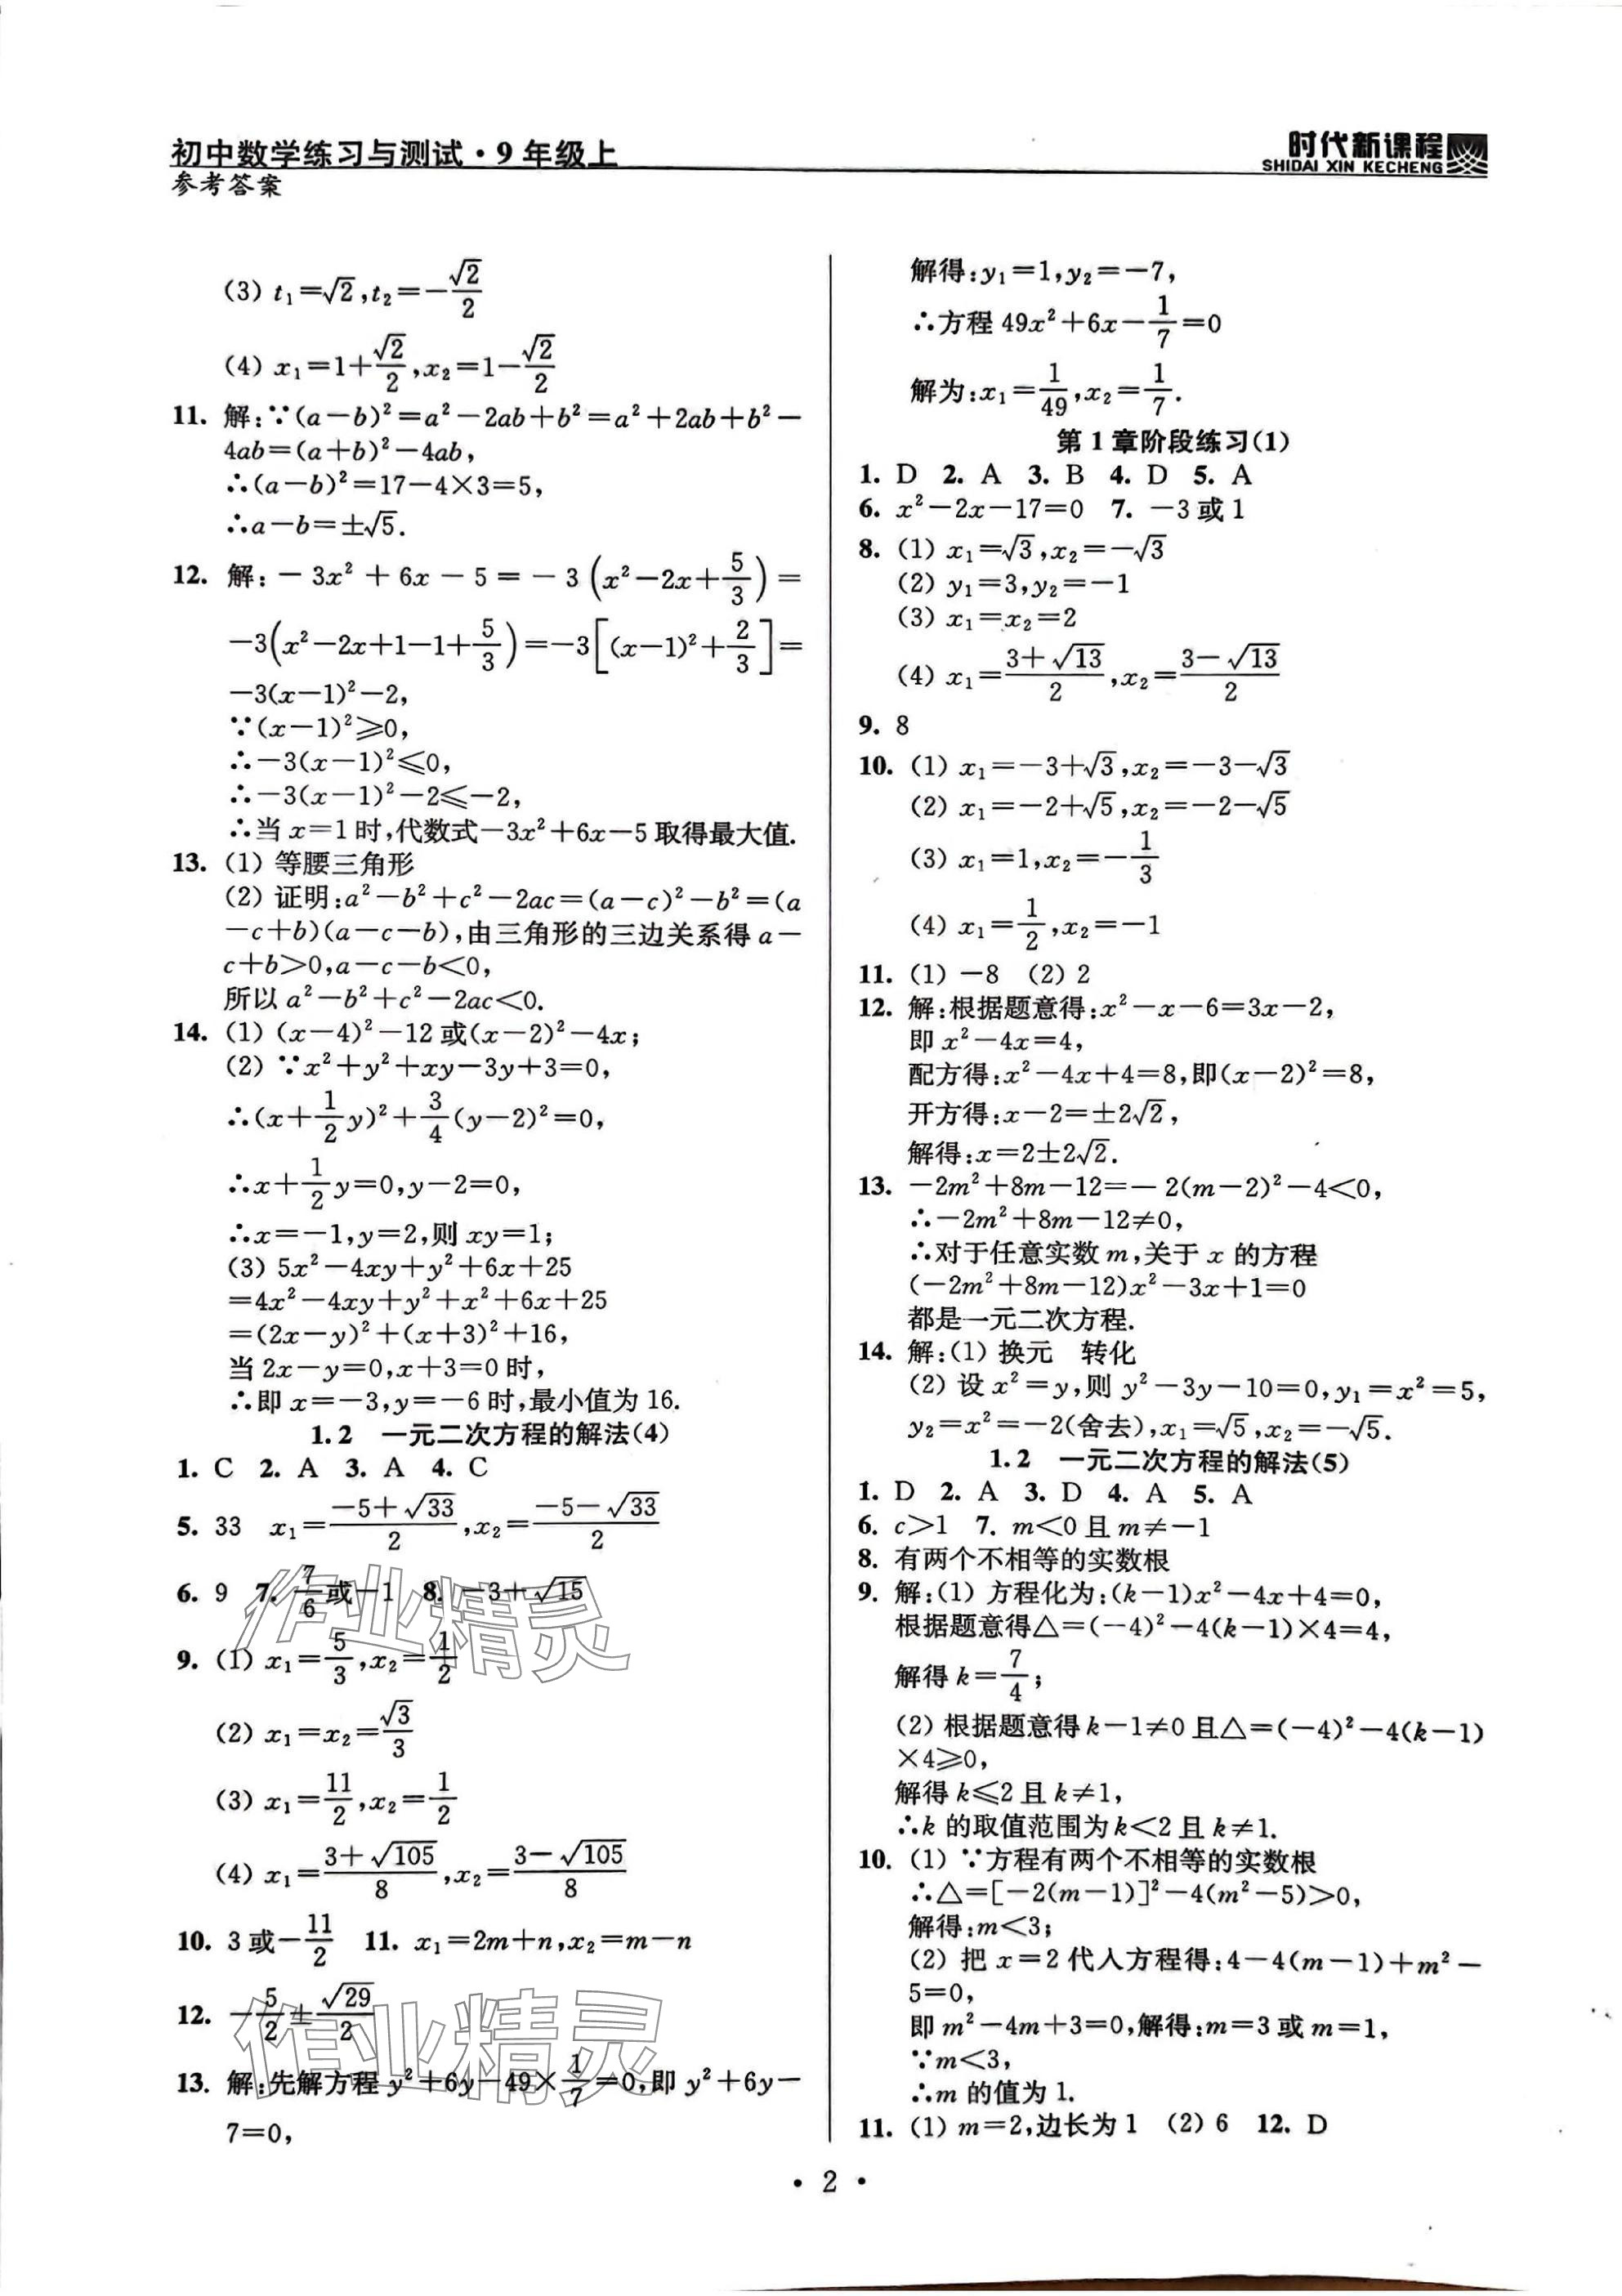 初中数学练习与测试·9年级上
参考答案
时代新课程
SHIDAI XIN KECHENG
(3) t₁=√2,t₂=-√2/2
(4) x₁=1+√2/2,x₂=1-√2/2
11. 解:∵(a-b)²=a²-2ab+b²=a²+2ab+b²-
4ab=(a+b)²-4ab,
∴(a-b)²=17-4×3=5,
∴a-b=±√5.
12. 解:-3x²+6x-5=-3(x²-2x+5/3)=
-3(x²-2x+1-1+5/3)=-3[(x-1)²+2/3]=
-3(x-1)²-2,
∵(x-1)²≥0,
∴-3(x-1)²≤0,
∴-3(x-1)²-2≤-2,
∴当x=1时,代数式-3x²+6x-5取得最大值.
13. (1) 等腰三角形
(2) 证明:a²-b²+c²-2ac=(a-c)²-b²=(a
-c+b)(a-c-b),由三角形的三边关系得a-
c+b>0,a-c-b<0,
所以a²-b²+c²-2ac<0.
14. (1) (x-4)²-12或(x-2)²-4x;
(2) ∵x²+y²+xy-3y+3=0,
∴(x+1/2y)²+3/4(y-2)²=0,
∴x+1/2y=0,y-2=0,
∴x=-1,y=2,则xy=1;
(3) 5x²-4xy+y²+6x+25
=4x²-4xy+y²+x²+6x+25
=(2x-y)²+(x+3)²+16,
当2x-y=0,x+3=0时,
∴即x=-3,y=-6时,最小值为16.
1.2 一元二次方程的解法(4)
1. C 2. A 3. A 4. C
5. 33 x₁=(-5+√33)/2,x₂=(-5-√33)/2
6. 9 7. 7/6或-1 8. -3+√15
9. (1) x₁=5/3,x₂=1/2
(2) x₁=x₂=√3/3
(3) x₁=11/2,x₂=1/2
(4) x₁=(3+√105)/8,x₂=(3-√105)/8
10. 3或-11/2 11. x₁=2m+n,x₂=m-n
12. -5/2±√29/2
13. 解:先解方程y²+6y-49×1/7=0,即y²+6y-
7=0,
解得:y₁=1,y₂=-7,
∴方程49x²+6x-1/7=0
解为:x₁=1/49,x₂=1/7.
第1章阶段练习(1)
1. D 2. A 3. B 4. D 5. A
6. x²-2x-17=0 7. -3或1
8. (1) x₁=√3,x₂=-√3
(2) y₁=3,y₂=-1
(3) x₁=x₂=2
(4) x₁=(3+√13)/2,x₂=(3-√13)/2
9. 8
10. (1) x₁=-3+√3,x₂=-3-√3
(2) x₁=-2+√5,x₂=-2-√5
(3) x₁=1,x₂=-1/3
(4) x₁=1/2,x₂=-1
11. (1) -8 (2) 2
12. 解:根据题意得:x²-x-6=3x-2,
即x²-4x=4,
配方得:x²-4x+4=8,即(x-2)²=8,
开方得:x-2=±2√2,
解得:x=2±2√2.
13. -2m²+8m-12=-2(m-2)²-4<0,
∴-2m²+8m-12≠0,
∴对于任意实数m,关于x的方程
(-2m²+8m-12)x²-3x+1=0
都是一元二次方程.
14. 解:(1) 换元 转化
(2) 设x²=y,则y²-3y-10=0,y₁=x²=5,
y₂=x²=-2(舍去),x₁=√5,x₂=-√5.
1.2 一元二次方程的解法(5)
1. D 2. A 3. D 4. A 5. A
6. c>1 7. m<0且m≠-1
8. 有两个不相等的实数根
9. 解:(1) 方程化为:(k-1)x²-4x+4=0,
根据题意得△=(-4)²-4(k-1)×4=4,
解得k=7/4;
(2) 根据题意得k-1≠0且△=(-4)²-4(k-1)
×4≥0,
解得k≤2且k≠1,
∴k的取值范围为k<2且k≠1.
10. (1) ∵方程有两个不相等的实数根
∴△=[-2(m-1)]²-4(m²-5)>0,
解得:m<3;
(2) 把x=2代入方程得:4-4(m-1)+m²-
5=0,
即m²-4m+3=0,解得:m=3或m=1,
∵m<3,
∴m的值为1.
11. (1) m=2,边长为1 (2) 6 12. D
·2·
作业精灵
作业精灵